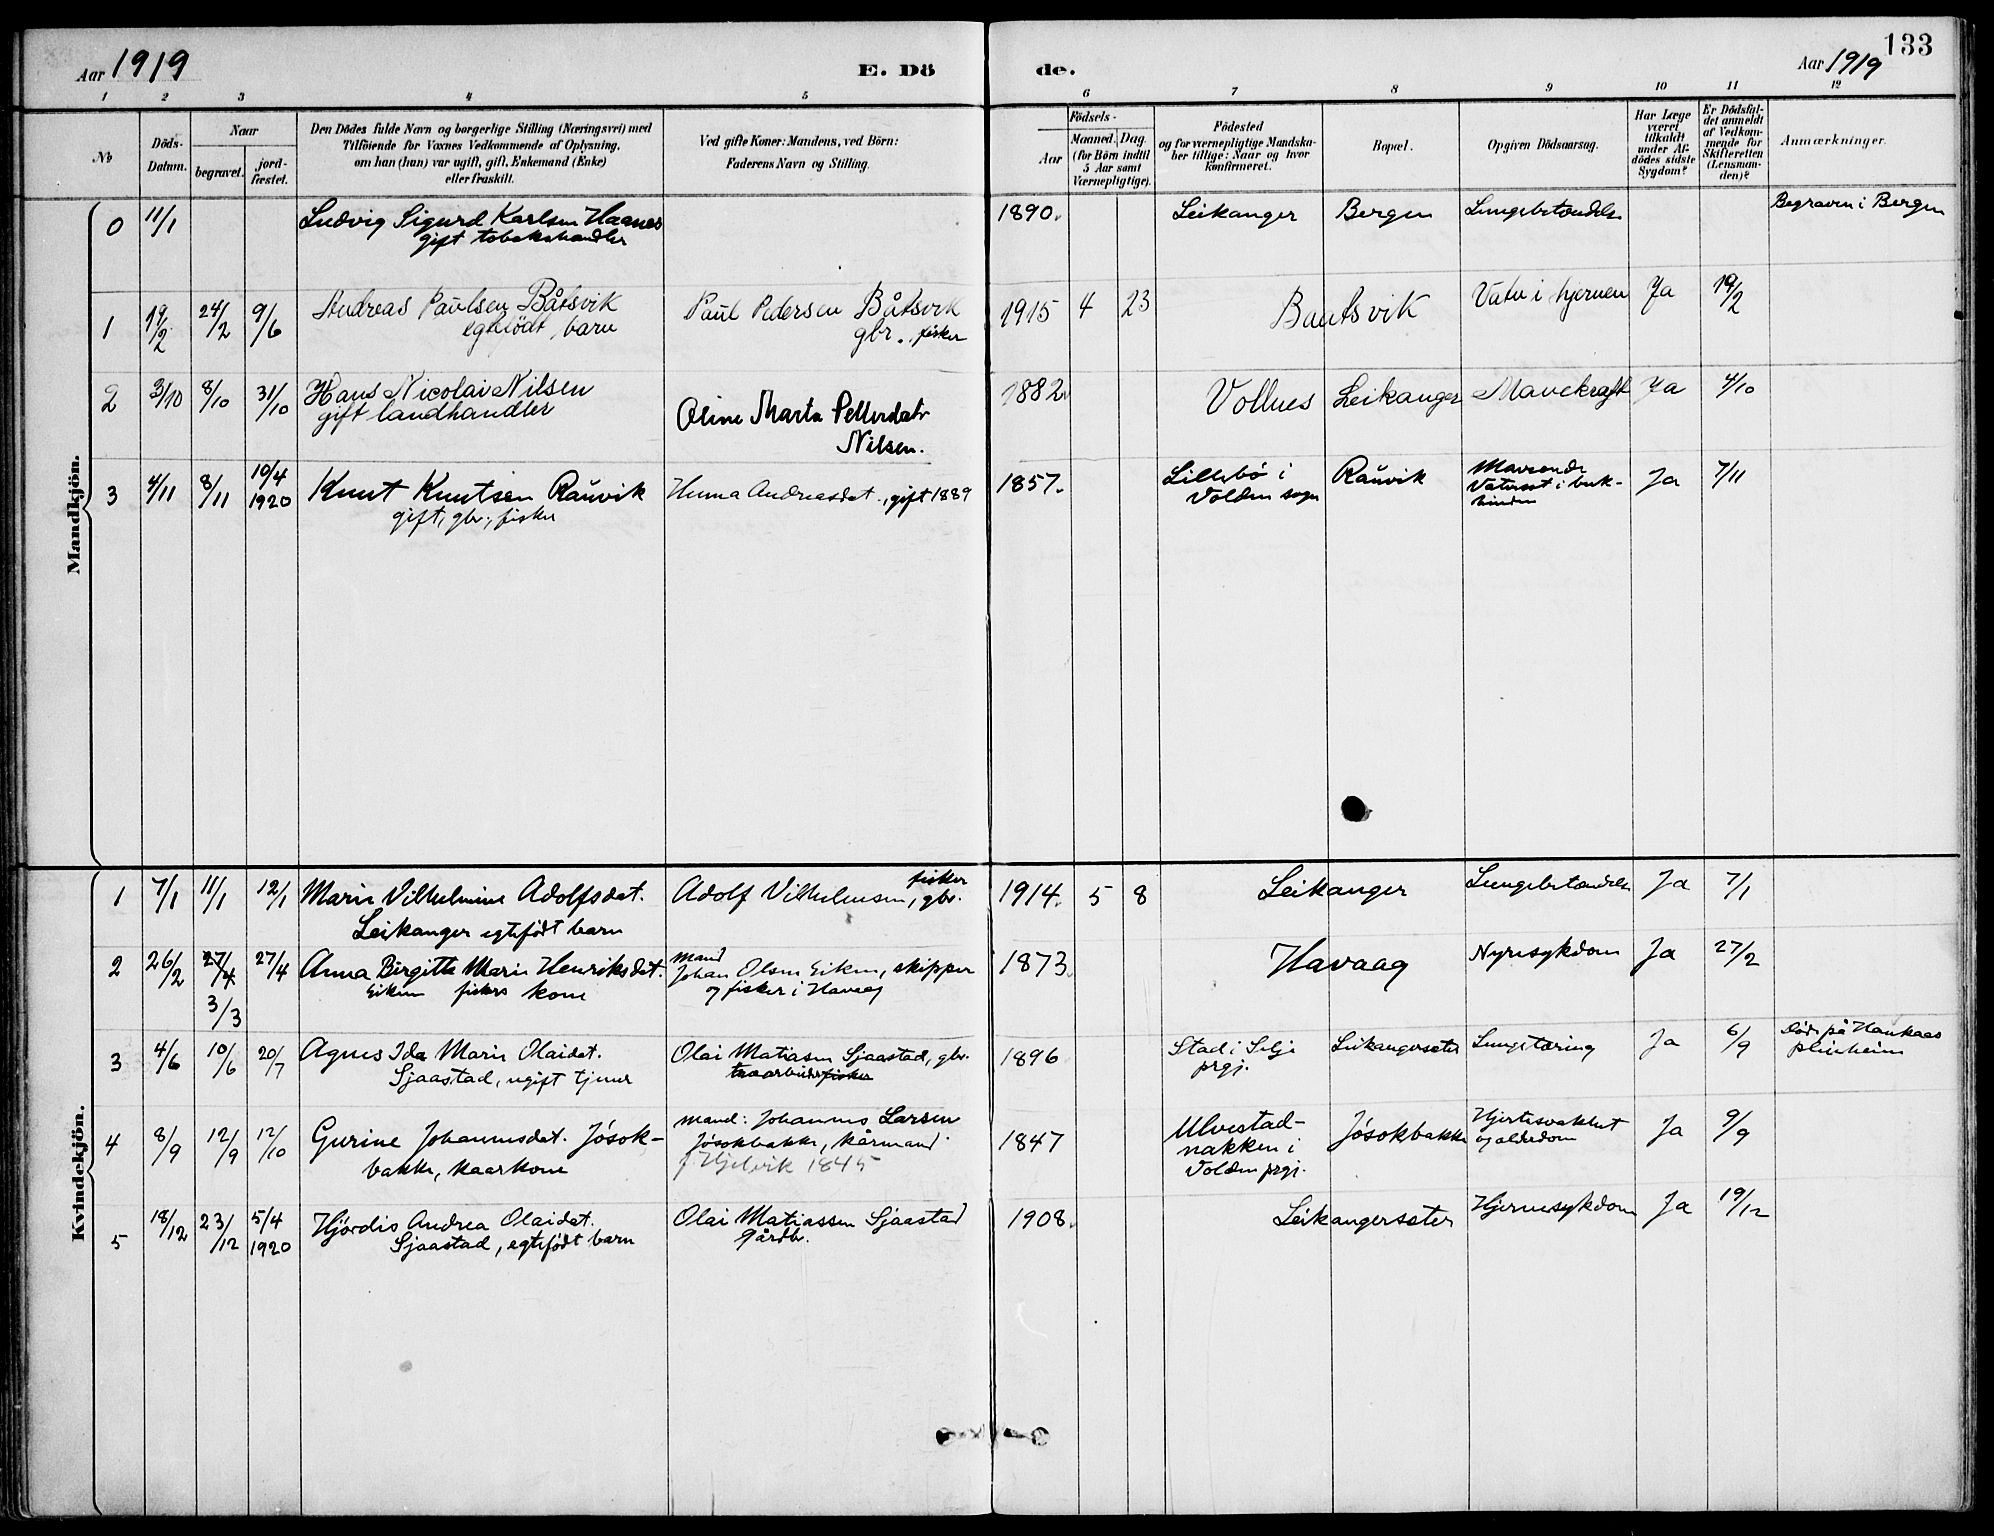 133
Aar 1919
E. Dö
de.
Aar 1919
1 2 3 4 5 6 7 8 9 10 11 12
No
Döds-
Datum.
Naar
begravet.
jord-
fæstet.
Den Dödes fulde Navn og borgerlige Stilling (Næringsvei) med
Tilföiende for Voxnes Vedkommende af Oplysning,
om han (hun) var ugift, gift, Enkemand (Enke)
eller fraskilt.
Ved gifte Koner: Mandens, ved Börn:
Faderens Navn og Stilling.
Födsels-
Aar
Maaned. Dag.
(for Börn indtil
5 Aar samt
Værnepligtige).
Födested
og for værnepligtige Mandska-
ber tillige: Naar og hvor
konfirmeret.
Bopæl.
Opgiven Dödsaarsag.
Har Læge
været
tilkaldt
under Af-
dödes sidste
Sygdom?
Er Dödsfal-
det anmeldt
af Vedkom-
mende for
Skifteretten
(Lensman-
den)?
Anmærkninger.
Mandkjön.
0 11/1 Ludvig Sigurd Karlsen Haanes 1890. Leikanger Bergen Lungebetændelse Begraven i Bergen
gift tobakshandler
1 19/2 24/2 9/6 Andreas Paulsen Båtsvik Paul Pedersen Båtsvik 1915 4 23 Bautsvik Vatn i hjernen Ja 19/2
egtefödt barn gbr., fisker
2 3/10 8/10 31/10 Hans Nicolai Nilsen 1882. Vollnes Leikanger Mavekræft Ja 4/10
gift landhandler Oline Marta Petterdatr
Nilsen.
3 4/11 8/11 10/4 1920 Knut Knutsen Rauvik Andreasdat., gift 1889 1857. Lillebö i Rauvik Ja 7/11
gift, gbr., fisker Volden sogn
Vatersot i buk-
hinden
Kvindekjön.
1 7/1 11/1 12/1 Marie Vilhelmine Adolfsdat. Adolf Vilhelmsen, fisker gbr. 1914. 5 8 Leikanger Lungebetændelse Ja 7/1
Leikanger egtefödt barn
2 26/2 27/4 27/4 Anna Birgitte Marie Henriksdat. mand 1873. Havaag Nyresykdom Ja 27/2
Eiken fiskers kone Johan Olsen Eiken, skipper
3/3 og fisker i Havaag
3 4/6 10/6 20/7 Agnes Ida Marie Olaidat. Olai Matiasen Sjaastad, gbr. 1896 Stad i Selje Leikangerseter Lungetæring Ja 6/9 Död på Haukaas
Sjaastad, ugift tjener træarbeider fisker prgj. pleieheim
4 8/9 12/9 12/10 Gurine Johannesdat. Jösok- mand: Johannes Larsen 1847 Ulvestad- Jösokbakke Hjertesvakhet Ja 9/9
bakke, kaarkone Jösokbakke, kårmand nakken i og alderdom
f Hjelvik 1845 Volden prgj.
5 18/12 23/12 5/4 1920 Hjördis Andrea Olaidat. Olai Matiassen Sjaastad 1908. Leikangerseter Hjernesykdom Ja 19/12
Sjaastad, egtefödt barn Gårdbr.